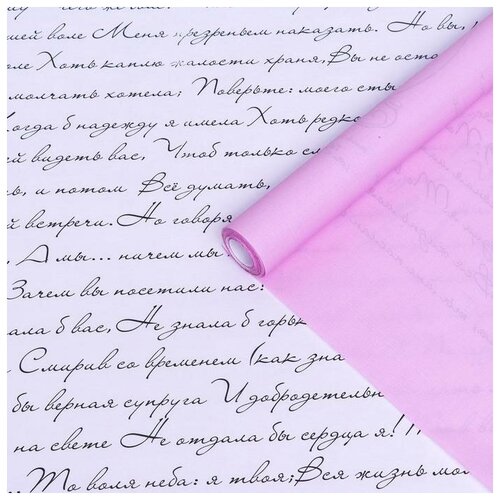 шей воле Меня презреньем наказать. Но вы,
Хоть каплю жалости храня, Вы не оста
молчать хотела; Поверьте: моего сты
Когда б надежду я имела Хоть редко
й видеть вас, Чтоб только сл
ь, и потом Всё думать,
й встречи. Но говоря
А мы... ничем мы
Зачем вы посетили нас:
ала б вас, Не знала б горьк
Смирив со временем (как зна
бы верная супруга И добродетельн
на свете Не отдала бы сердца я!
То воля неба: я твоя; Вся жизнь мо